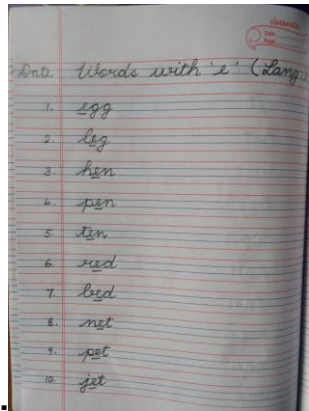 classmate
Date
Page
Date Words with 'e' (Lang.)
1. egg
2. leg
3. hen
4. pen
5. ten
6. red
7. bed
8. net
9. pet
10. jet